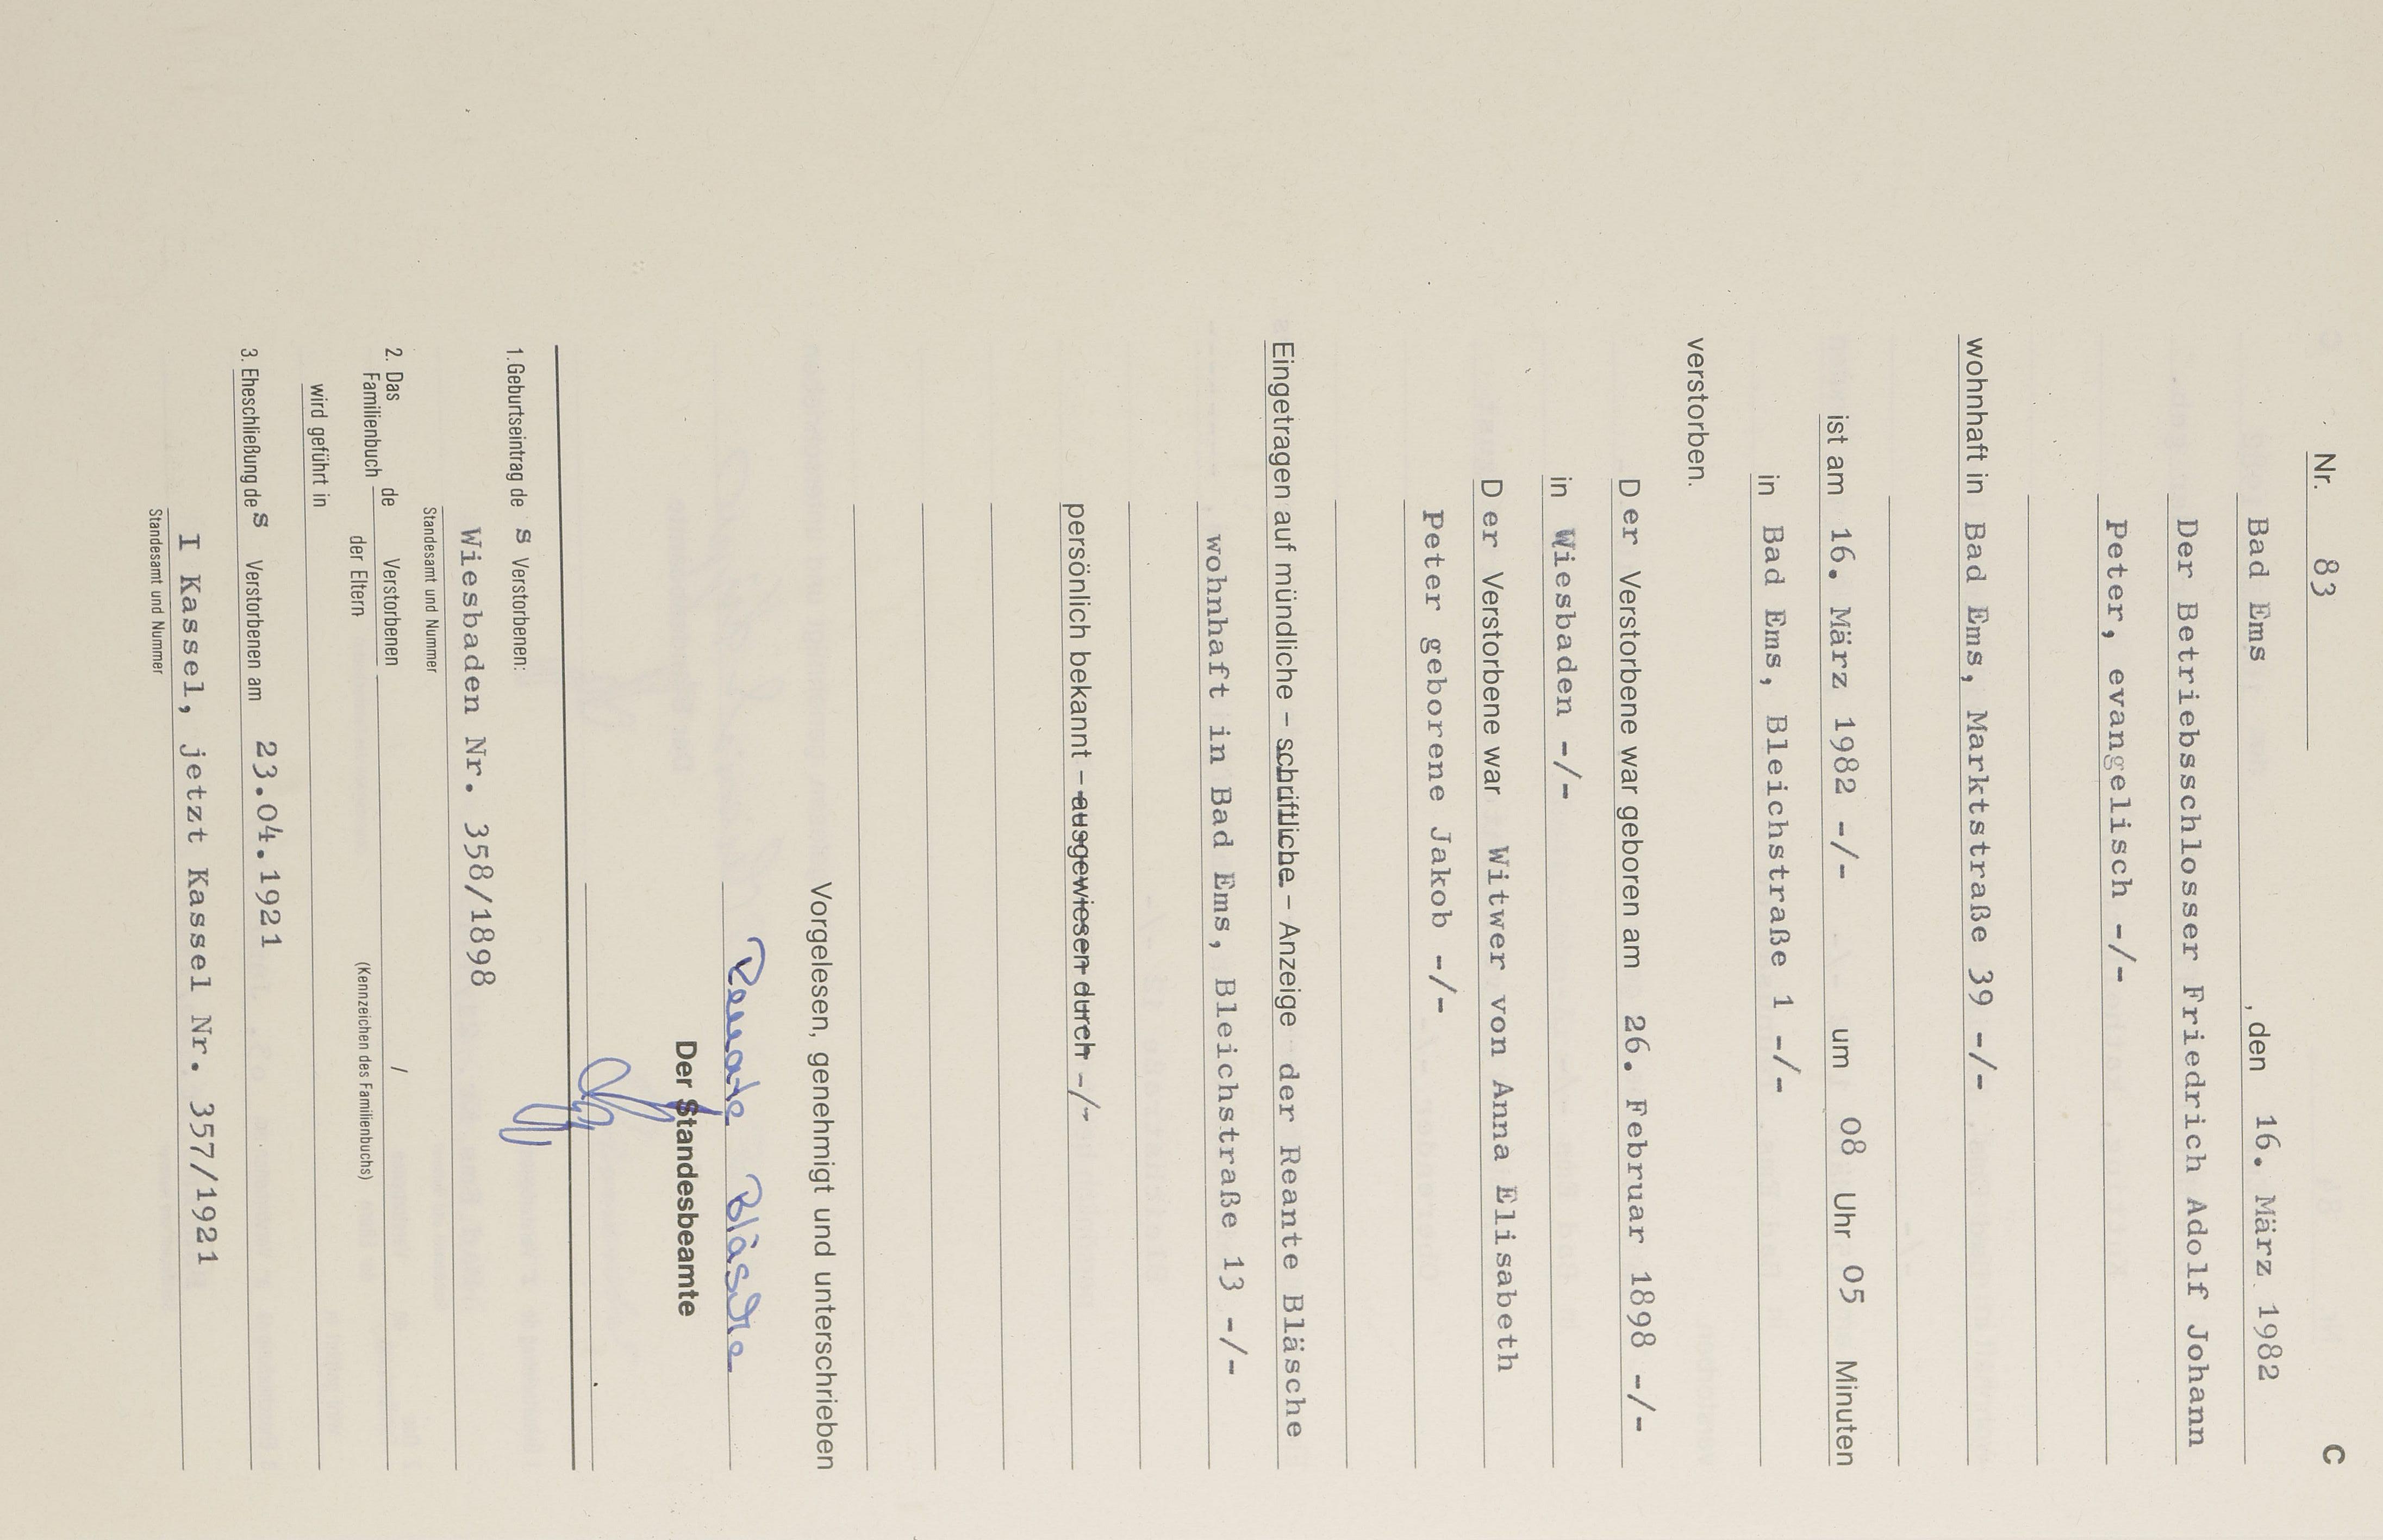 C
Nr. 83
Bad Ems, den 16. März 1982
Der Betriebsschlosser Friedrich Adolf Johann
Peter, evangelisch -/-
wohnhaft in Bad Ems, Marktstraße 39 -/-
ist am 16. März 1982 -/- um 08 Uhr 05 Minuten
in Bad Ems, Bleichstraße 1 -/-
verstorben.
Der Verstorbene war geboren am 26. Februar 1898 -/-
in Wiesbaden -/-
Der Verstorbene war Witwer von Anna Elisabeth
Peter geborene Jakob -/-
Eingetragen auf mündliche – schriftliche – Anzeige der Reante Bläsche
wohnhaft in Bad Ems, Bleichstraße 13 -/-
persönlich bekannt – ausgewiesen durch -/-
Vorgelesen, genehmigt und unterschrieben
Renate Bläsche
Der Standesbeamte
1. Geburtseintrag des Verstorbenen:
Wiesbaden Nr. 358/1898
Standesamt und Nummer
2. Das Familienbuch de Verstorbenen /
der Eltern (Kennzeichen des Familienbuchs)
wird geführt in
3. Eheschließung des Verstorbenen am 23.04.1921
I Kassel, jetzt Kassel Nr. 357/1921
Standesamt und Nummer